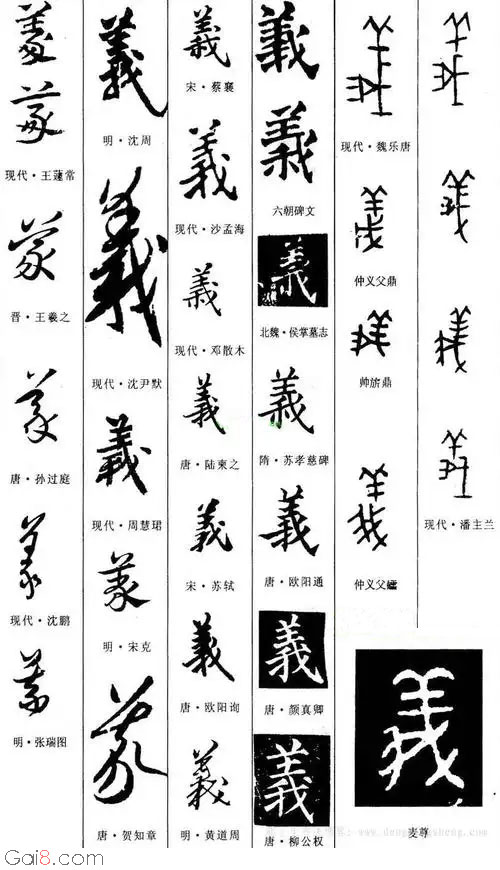 義
義
现代·王蘧常
義
晋·王羲之
義
唐·孙过庭
義
现代·沈鹏
義
明·张瑞图
義
明·沈周
義
现代·沈尹默
義
现代·周慧珺
義
明·宋克
義
唐·贺知章
義
宋·蔡襄
義
现代·沙孟海
義
现代·邓散木
義
唐·陆柬之
義
宋·苏轼
義
唐·欧阳询
義
明·黄道周
義
義
六朝碑文
義
北魏·侯掌墓志
義
隋·苏孝慈碑
義
唐·欧阳通
義
唐·颜真卿
義
唐·柳公权
義
现代·魏乐唐
義
仲义父鼎
義
義
仲义父
義
義
義
義
现代·潘主兰
義
麦尊
Gai8.com